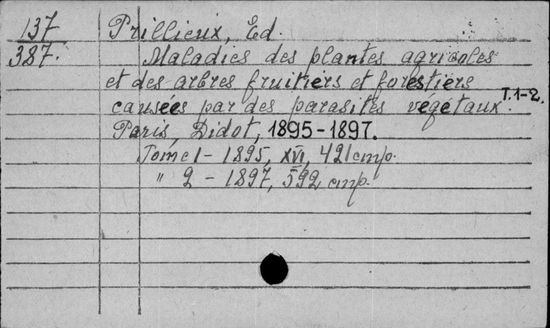 137 Prillieux, Ed.
387. Maladies des plantes agricoles
et des arbres fruitiers et forestiers
causées par des parasites végétaux. T.1-2.
Paris, Didot, 1895-1897.
Tome 1 - 1895, XVI, 421 стр.
" 2 - 1897, 592 стр.